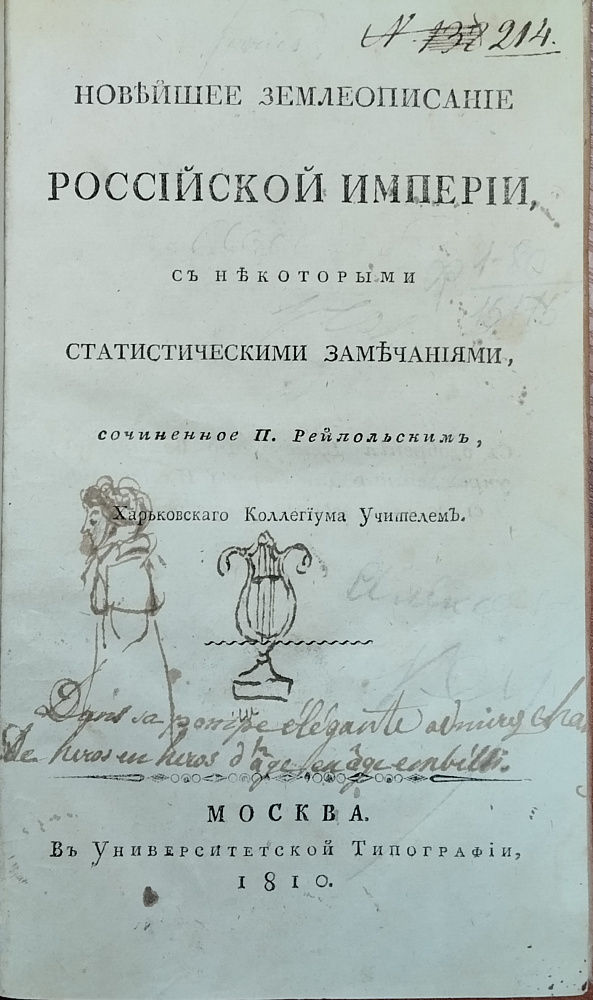 N. 138 214.
НОВѢЙШЕЕ ЗЕМЛЕОПИСАНІЕ
РОССІЙСКОЙ ИМПЕРІИ,
СЪ НѢКОТОРЫМИ
СТАТИСТИЧЕСКИМИ ЗАМѢЧАНІЯМИ,
сочиненное П. Рейпольскимъ,
Харьковскаго Коллегїума Учителемъ.
Dans sa pompe élégante admirez Cha
De heros en heros d'âge en âge embelli.
МОСКВА.
Въ Университетской Типографіи,
1810.